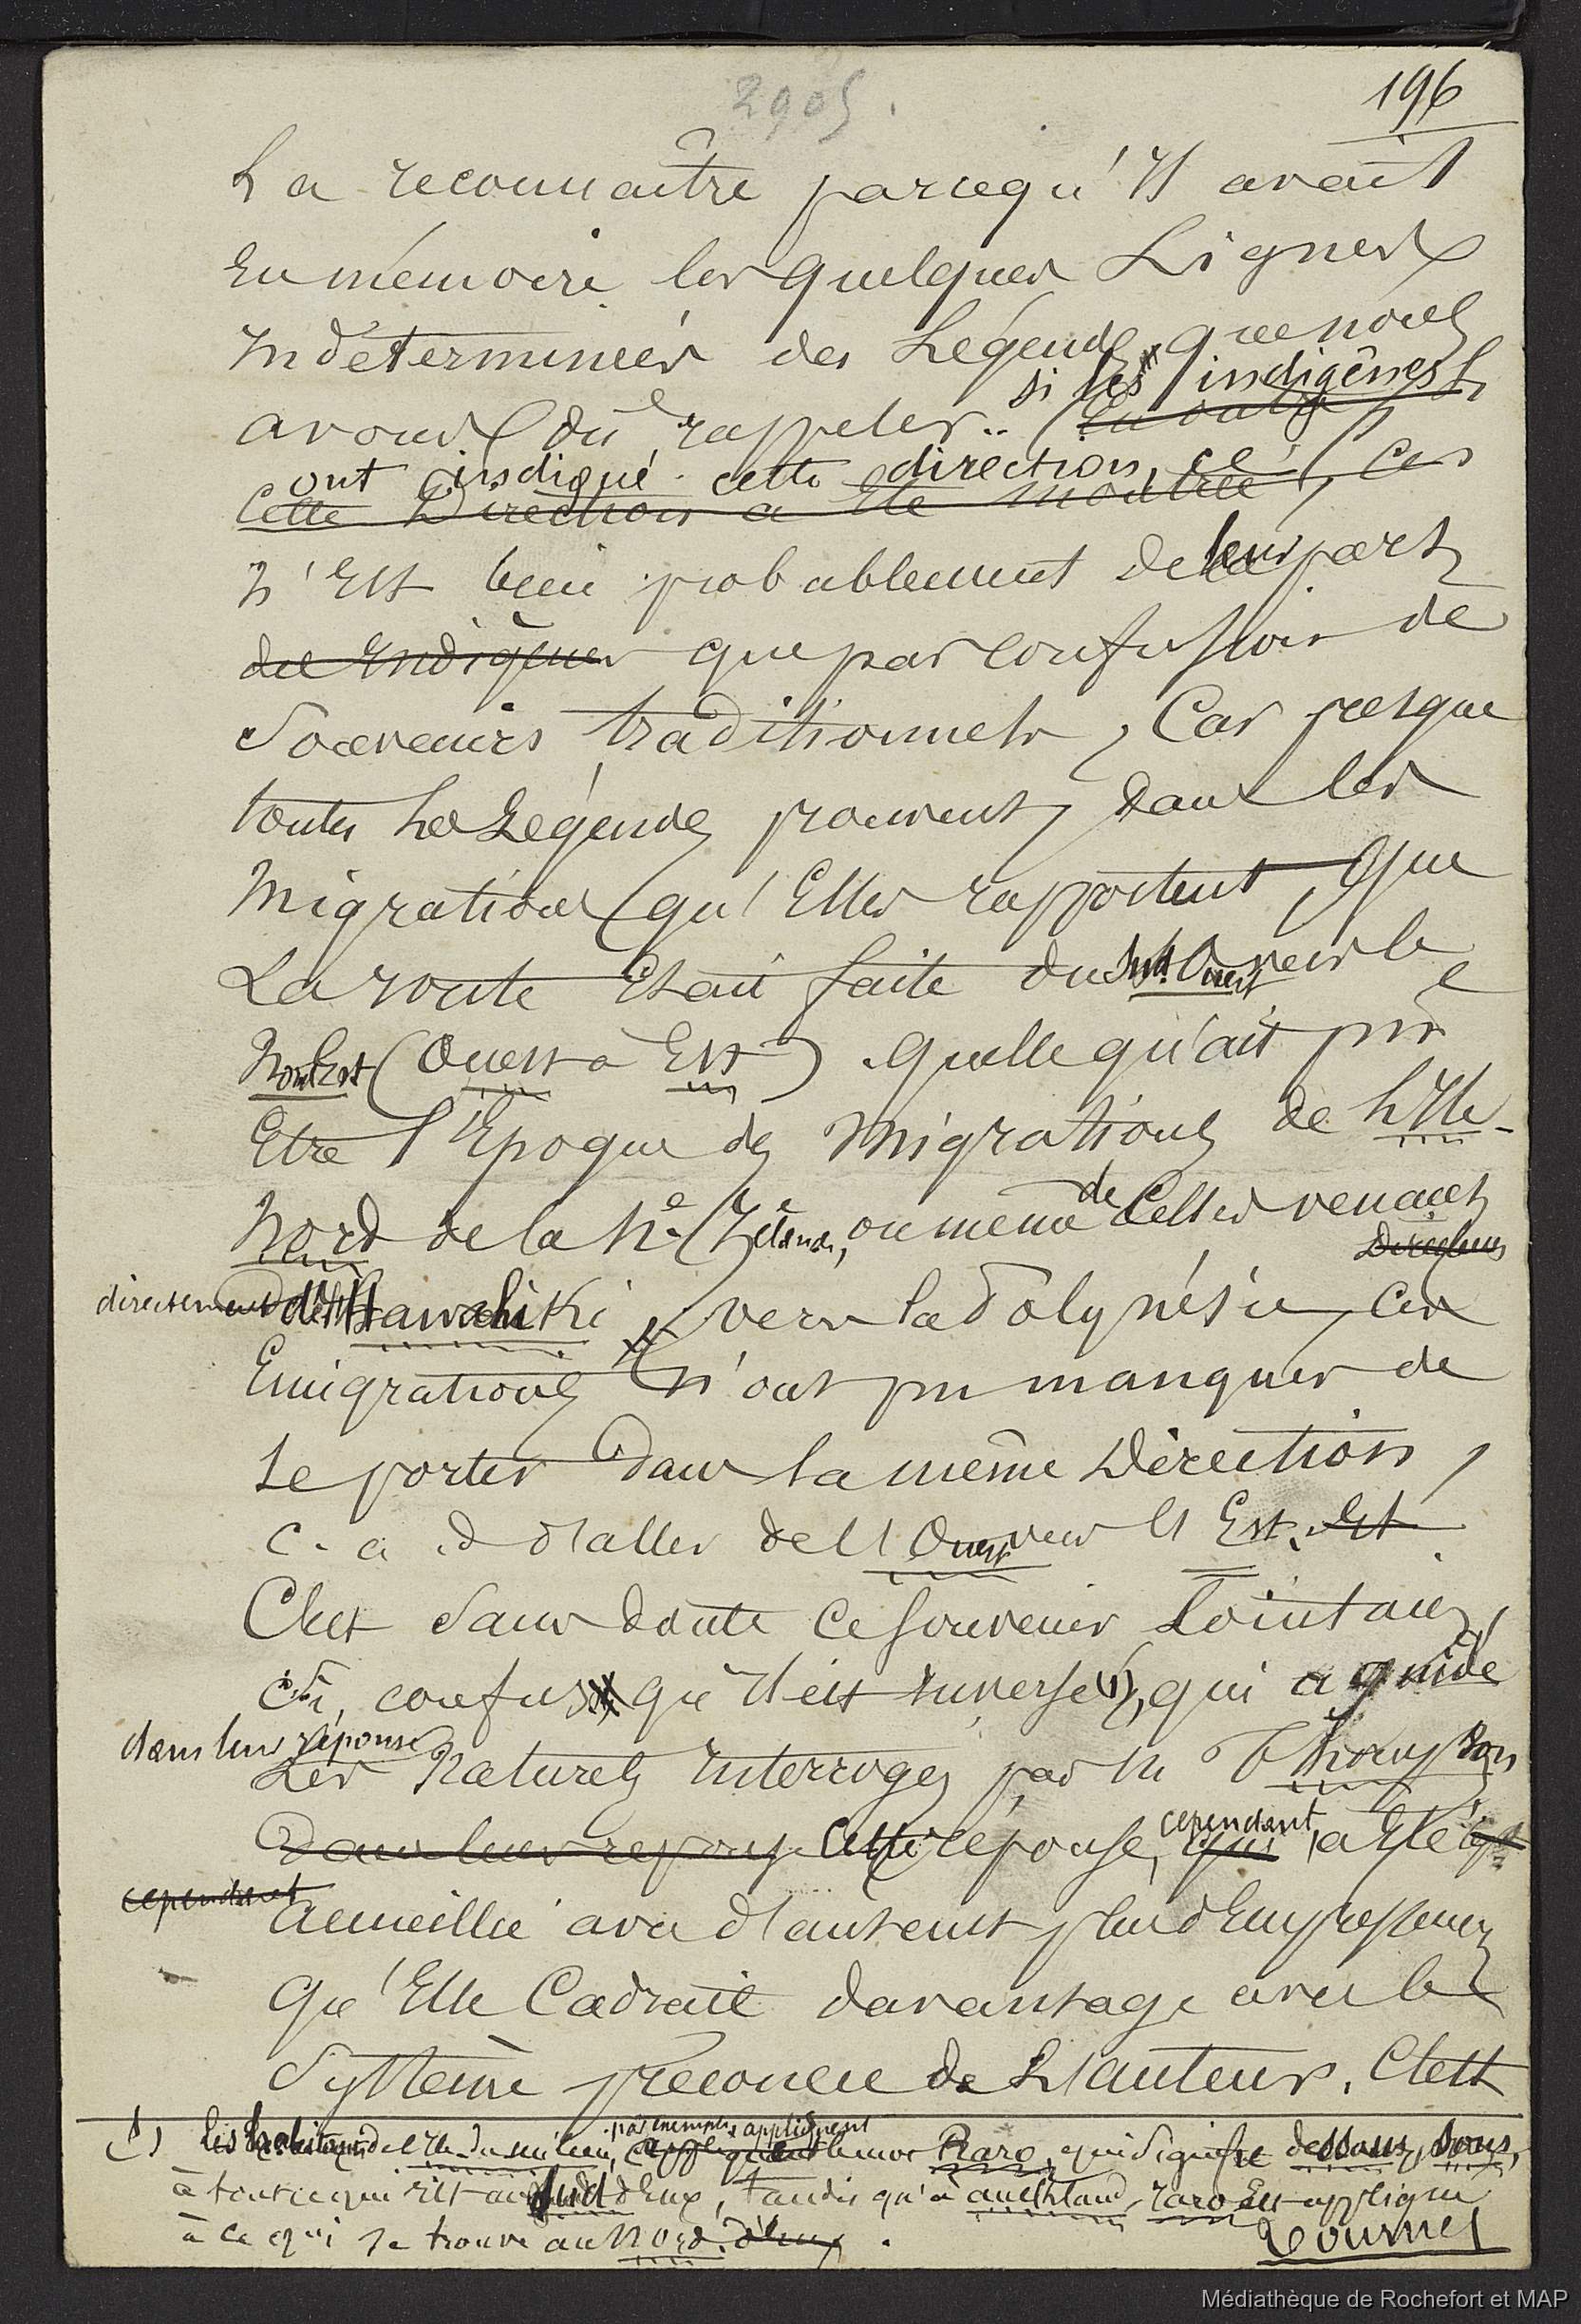 2905.
196
La reconnaître parcequ'Il avait
En mémoire les quelques Lignes
Indéterminées des Légendes que nous
si les indigènes
avons dû rappeler.. En outre
ont indiqué cette direction, ce
Cette Direction a été montrée, Ces
N'Est bien probablement de leur part
des Indigènes que par confusion de
Souvenirs traditionnels, Car presque
toutes les Légendes prouvent, dans les
Migrations qu'Elles rapportent, que
La route était faite du Sud.Ouest vers le
Nord Est (Ouest à Est) . Quelle qu'ait pu
Etre l'Epoque des Migrations de l'Ile-
Nord de la Nle Zélande, ou même de Celles venant
Directement
directement d'Hawahiki vers la Polynésie, Ces
Emigrations n'ont pu manquer de
se porter dans la même Direction,
C. a. d d'aller de l'Ouest vers l'Est. Et
C'est sans doute ce souvenir Lointain,
confus qu'il est renversé (1), qui a guidé
dans leur réponse
Les Naturels Interrogés par Mr Thompson
cependant
Dans leur réponse Cette réponse, qui a Eté
cependant
accueillie avec d'autant plus d'Empressement
qu'Elle Cadrait davantage avec le
Système préconçu de L'auteur. C'est
par exemple appliquent
(1) Les habitants de l'Ile du milieu, appliquent le mot Raro, qui signifie dessous, sous,
à tout ce qui Est au Sud d'Eux, tandis qu'à auckland, raro Est appliqué
à ce qui se trouve au Nord d'Eux.
Tournez
Médiathèque de Rochefort et MAP